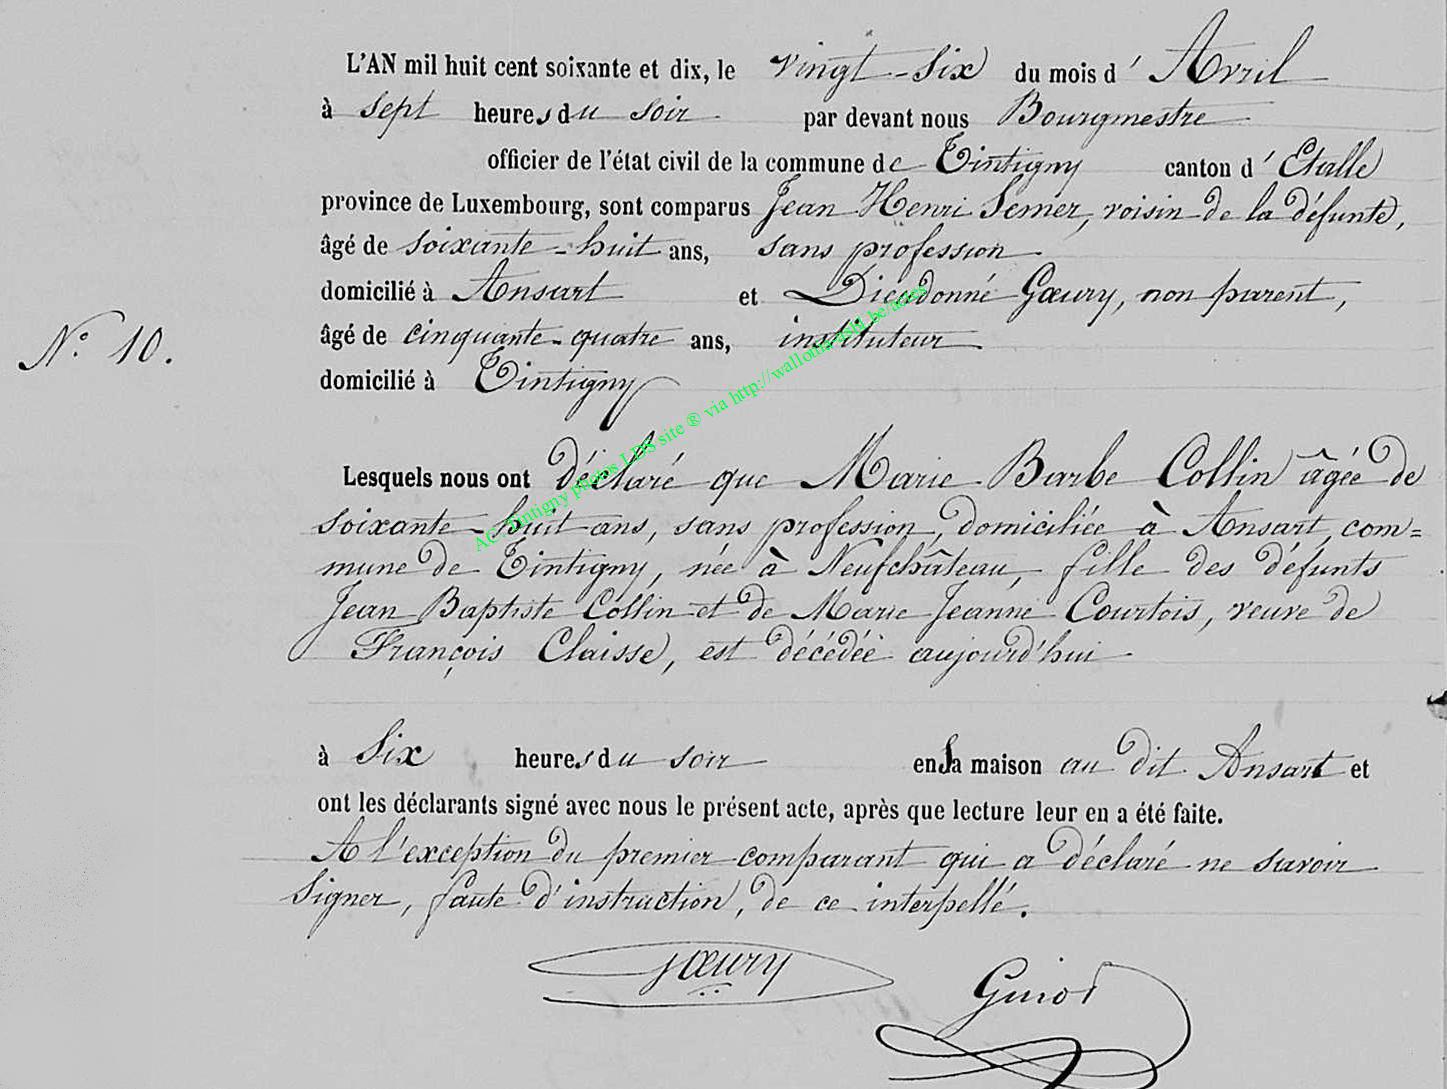 L'AN mil huit cent soixante et dix, le vingt-six du mois d' Avril
à sept heures du soir par devant nous Bourgmestre
officier de l'état civil de la commune de Tintigny canton d' Etalle
province de Luxembourg, sont comparus Jean Henri Semer, voisin de la défunte,
âgé de soixante-huit ans, sans profession
domicilié à Ansart et Dieudonné Gœury, non parent,
N° 10.
âgé de cinquante-quatre ans, instituteur
domicilié à Tintigny
Lesquels nous ont déclaré que Marie Barbe Collin âgée de
soixante-huit ans, sans profession, domiciliée à Ansart, com=
mune de Tintigny, née à Neufchâteau, fille des défunts
Jean Baptiste Collin et de Marie Jeanne Courtois, veuve de
François Claisse, est décédée aujourd'hui
à six heures du soir en sa maison au dit Ansart et
ont les déclarants signé avec nous le présent acte, après que lecture leur en a été faite.
A l'exception du premier comparant qui a déclaré ne savoir
signer, faute d'instruction, de ce interpellé.
Gœury
Guiot
AC Tintigny photos LDS site ® via http://wallonia-asbl.be/actes